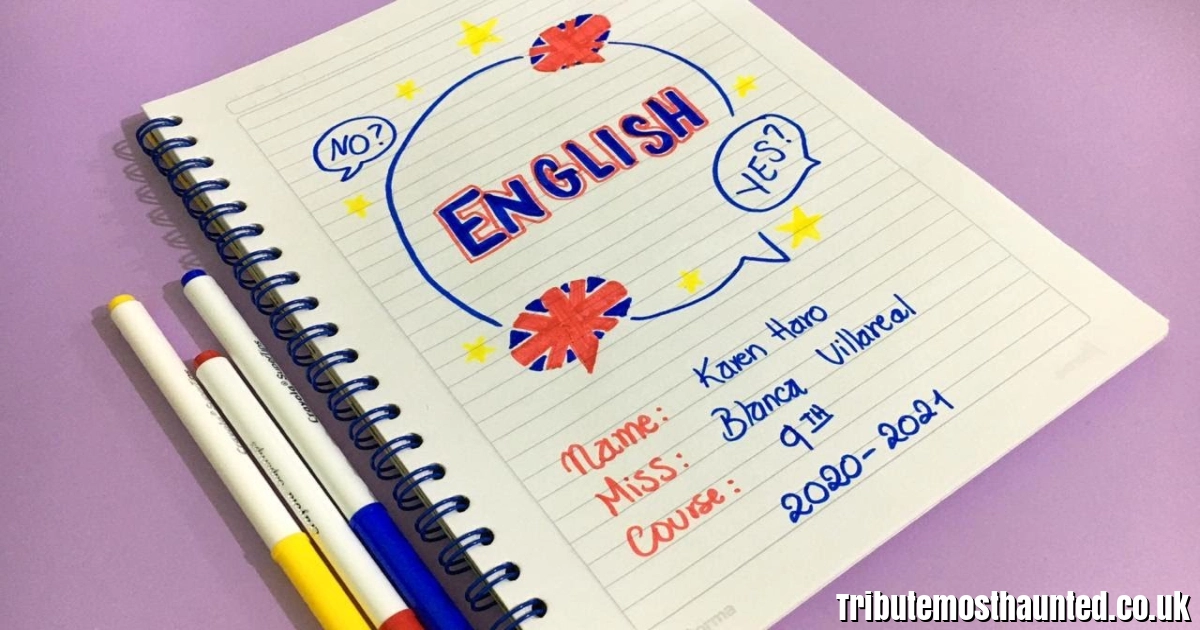 NO?
ENGLISH
YES?
Name: Karen Haro
Miss: Blanca Villareal
Course: 9TH
2020-2021
Tributemosthaunted.co.uk